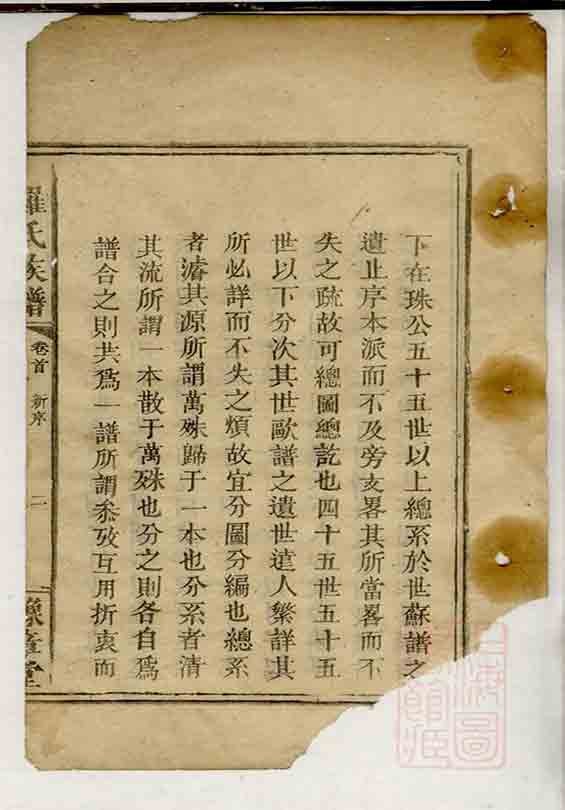 下在珠公五十五世以上總系於世蘇譜之
遺止序本派而不及旁支畧其所當畧而不
失之疏故可總圖總訖也四十五世五十五
世以下分次其世歐譜之遺世遠人繁詳其
所必詳而不失之煩故宜分圖分編也總系
者濬其源所謂萬殊歸于一本也分系者清
其流所謂一本散于萬殊也分之則各自為
譜合之則共為一譜所謂叅攷互用折衷而
羅氏族譜
卷首 新序
二
豫章堂
海圖
館